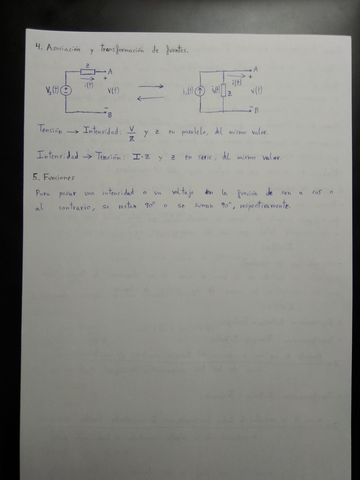 4. Asociación y transformación de fuentes.
Z A A
i(t) i(t)
+ +
Vs(t) V(t) is(t) Z V(t)
- -
B B
Tensión → Intensidad: V/Z y Z en paralelo, del mismo valor.
Intensidad → Tensión: I·Z y Z en serie, del mismo valor.
5. Funciones
Para pasar una intensidad o un voltaje en la función de sen a cos o
al contrario, se restan 90° o se suman 90°, respectivamente.